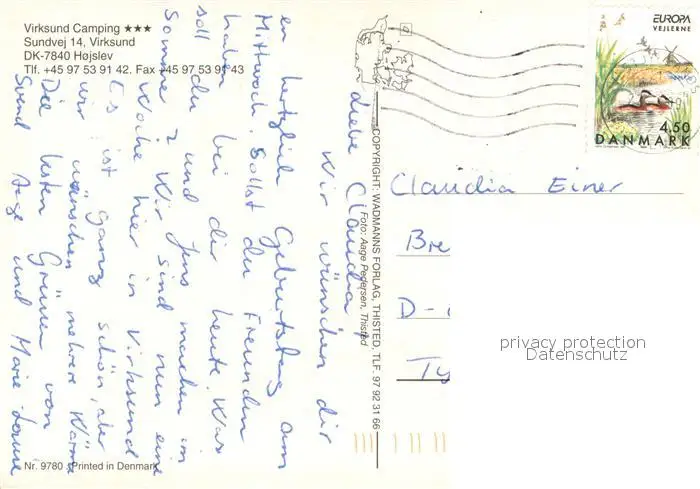 Virksund Camping ★★★
Sundvej 14, Virksund
DK-7840 Højslev
Tlf. +45 97 53 91 42. Fax +45 97 53 91 43
Liebe Claudia!
Wir wünschen dir
en hertzlich Geburtstag am
Mittwoch. Sollst du Freunden
haben bei dir heute. Was
soll du und Jens machen im
Sommer? Wir sind nun eine
Woche hier in Virksund
Es ist ganz schön, aber
wir wünschen mehrere Wärme
Die besten Grüssen von
Svend Aage und Marie-Louise
Nr. 9780 Printed in Denmark
COPYRIGHT: WADMANNS FORLAG, THISTED, TLF. 97 92 31 66
Foto: Aage Pedersen, Thisted
EUROPA
VEJLERNE
4,50
DANMARK
Claudia Einer
Bre
D-
Ty
privacy protection
Datenschutz